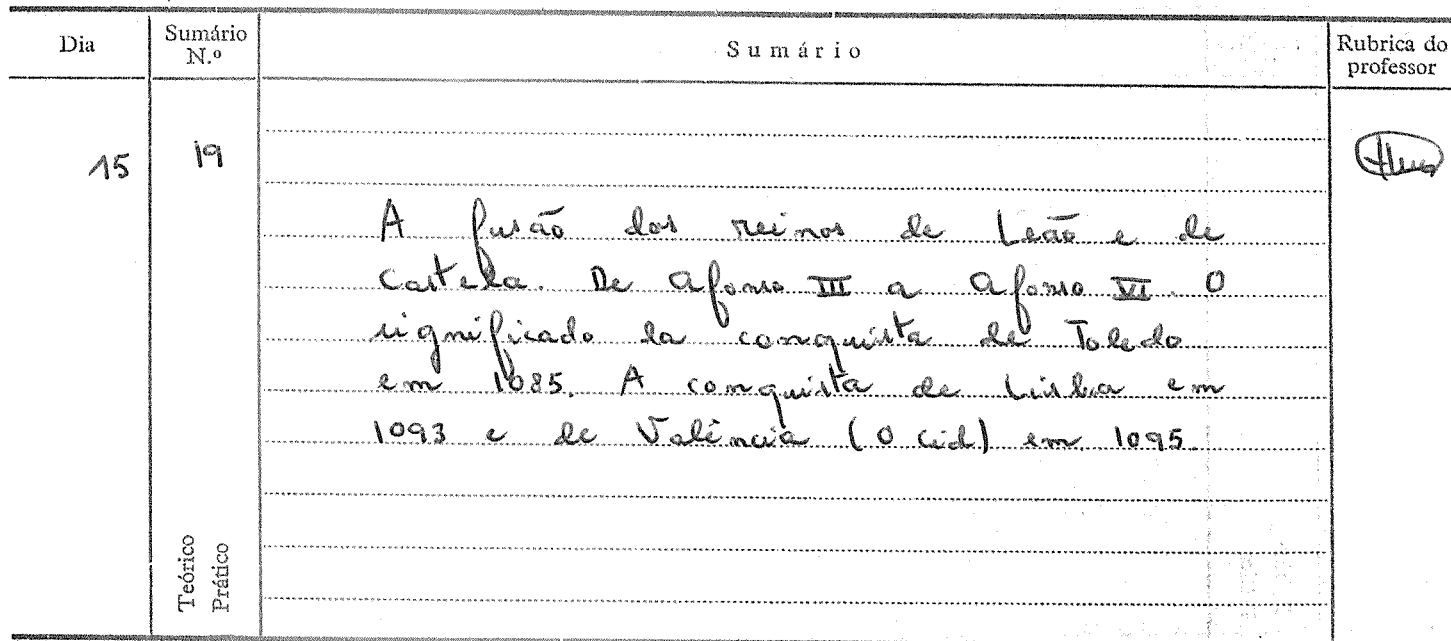 Dia
Sumário
N.º
Sumário
Rubrica do
professor
15
19
A fusão dos reinos de Leão e de
Castela. De Afonso III a Afonso VI. O
significado da conquista de Toledo
em 1085. A conquista de Lisboa em
1093 e de Valência (O Cid) em 1095.
Teórico
Prático